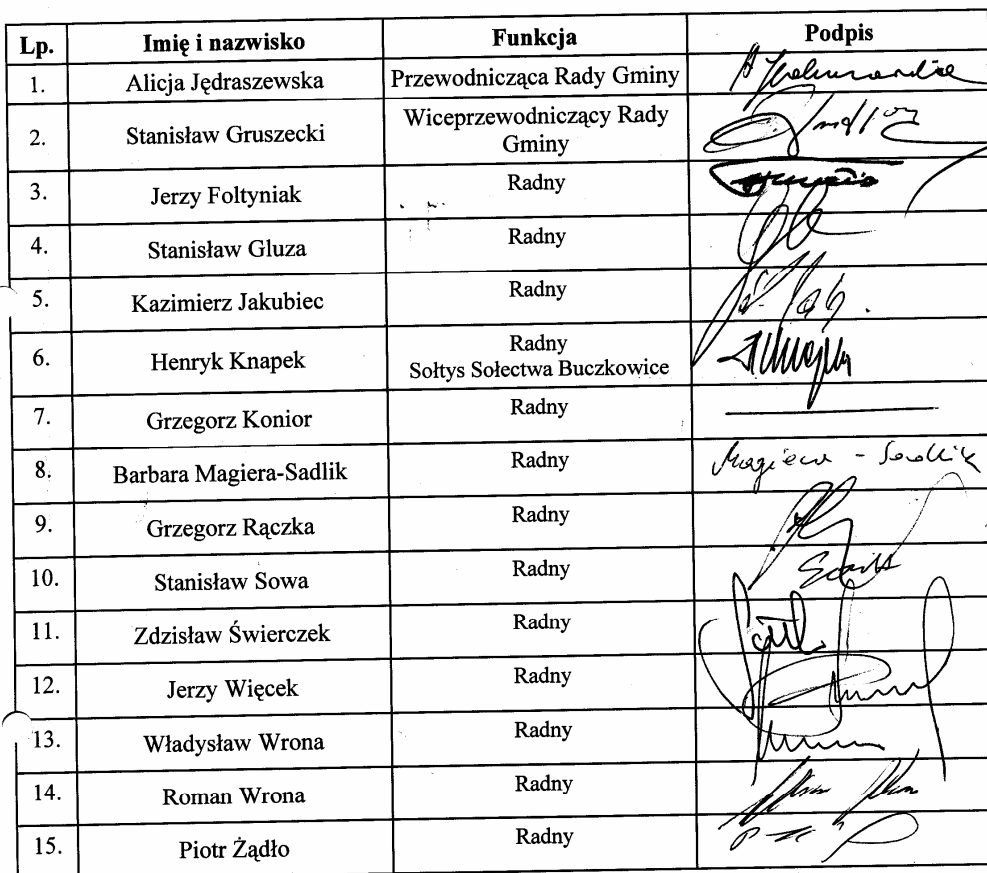 Lp. Imię i nazwisko Funkcja Podpis
1. Alicja Jędraszewska Przewodnicząca Rady Gminy
2. Stanisław Gruszecki Wiceprzewodniczący Rady
Gminy
3. Jerzy Foltyniak Radny
4. Stanisław Gluza Radny
5. Kazimierz Jakubiec Radny
6. Henryk Knapek Radny
Sołtys Sołectwa Buczkowice
7. Grzegorz Konior Radny
8. Barbara Magiera-Sadlik Radny Magiera - Sadlik
9. Grzegorz Rączka Radny
10. Stanisław Sowa Radny
11. Zdzisław Świerczek Radny
12. Jerzy Więcek Radny
13. Władysław Wrona Radny
14. Roman Wrona Radny
15. Piotr Żądło Radny